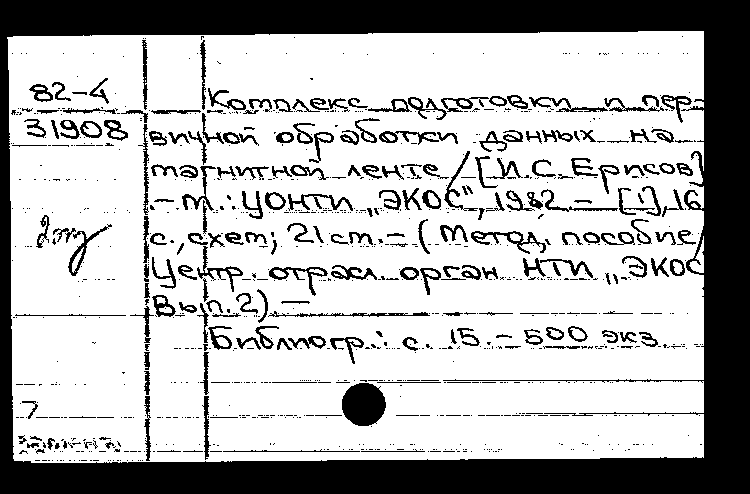 82-4
Комплекс подготовки и пер-
31908
вичной обработки данных на
магнитной ленте / [И.С. Ерисов]
.- М.: ЦОНТИ „ЭКОС", 1982. - [1], 16
с., схем; 21 см. - (Метод. пособие /
Центр. отрасл. орган НТИ „ЭКОС
Вып. 2). -
Библиогр.: с. 15. - 500 экз.
7